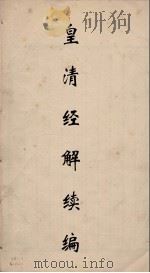 皇清经解续编
www.mtoou.info